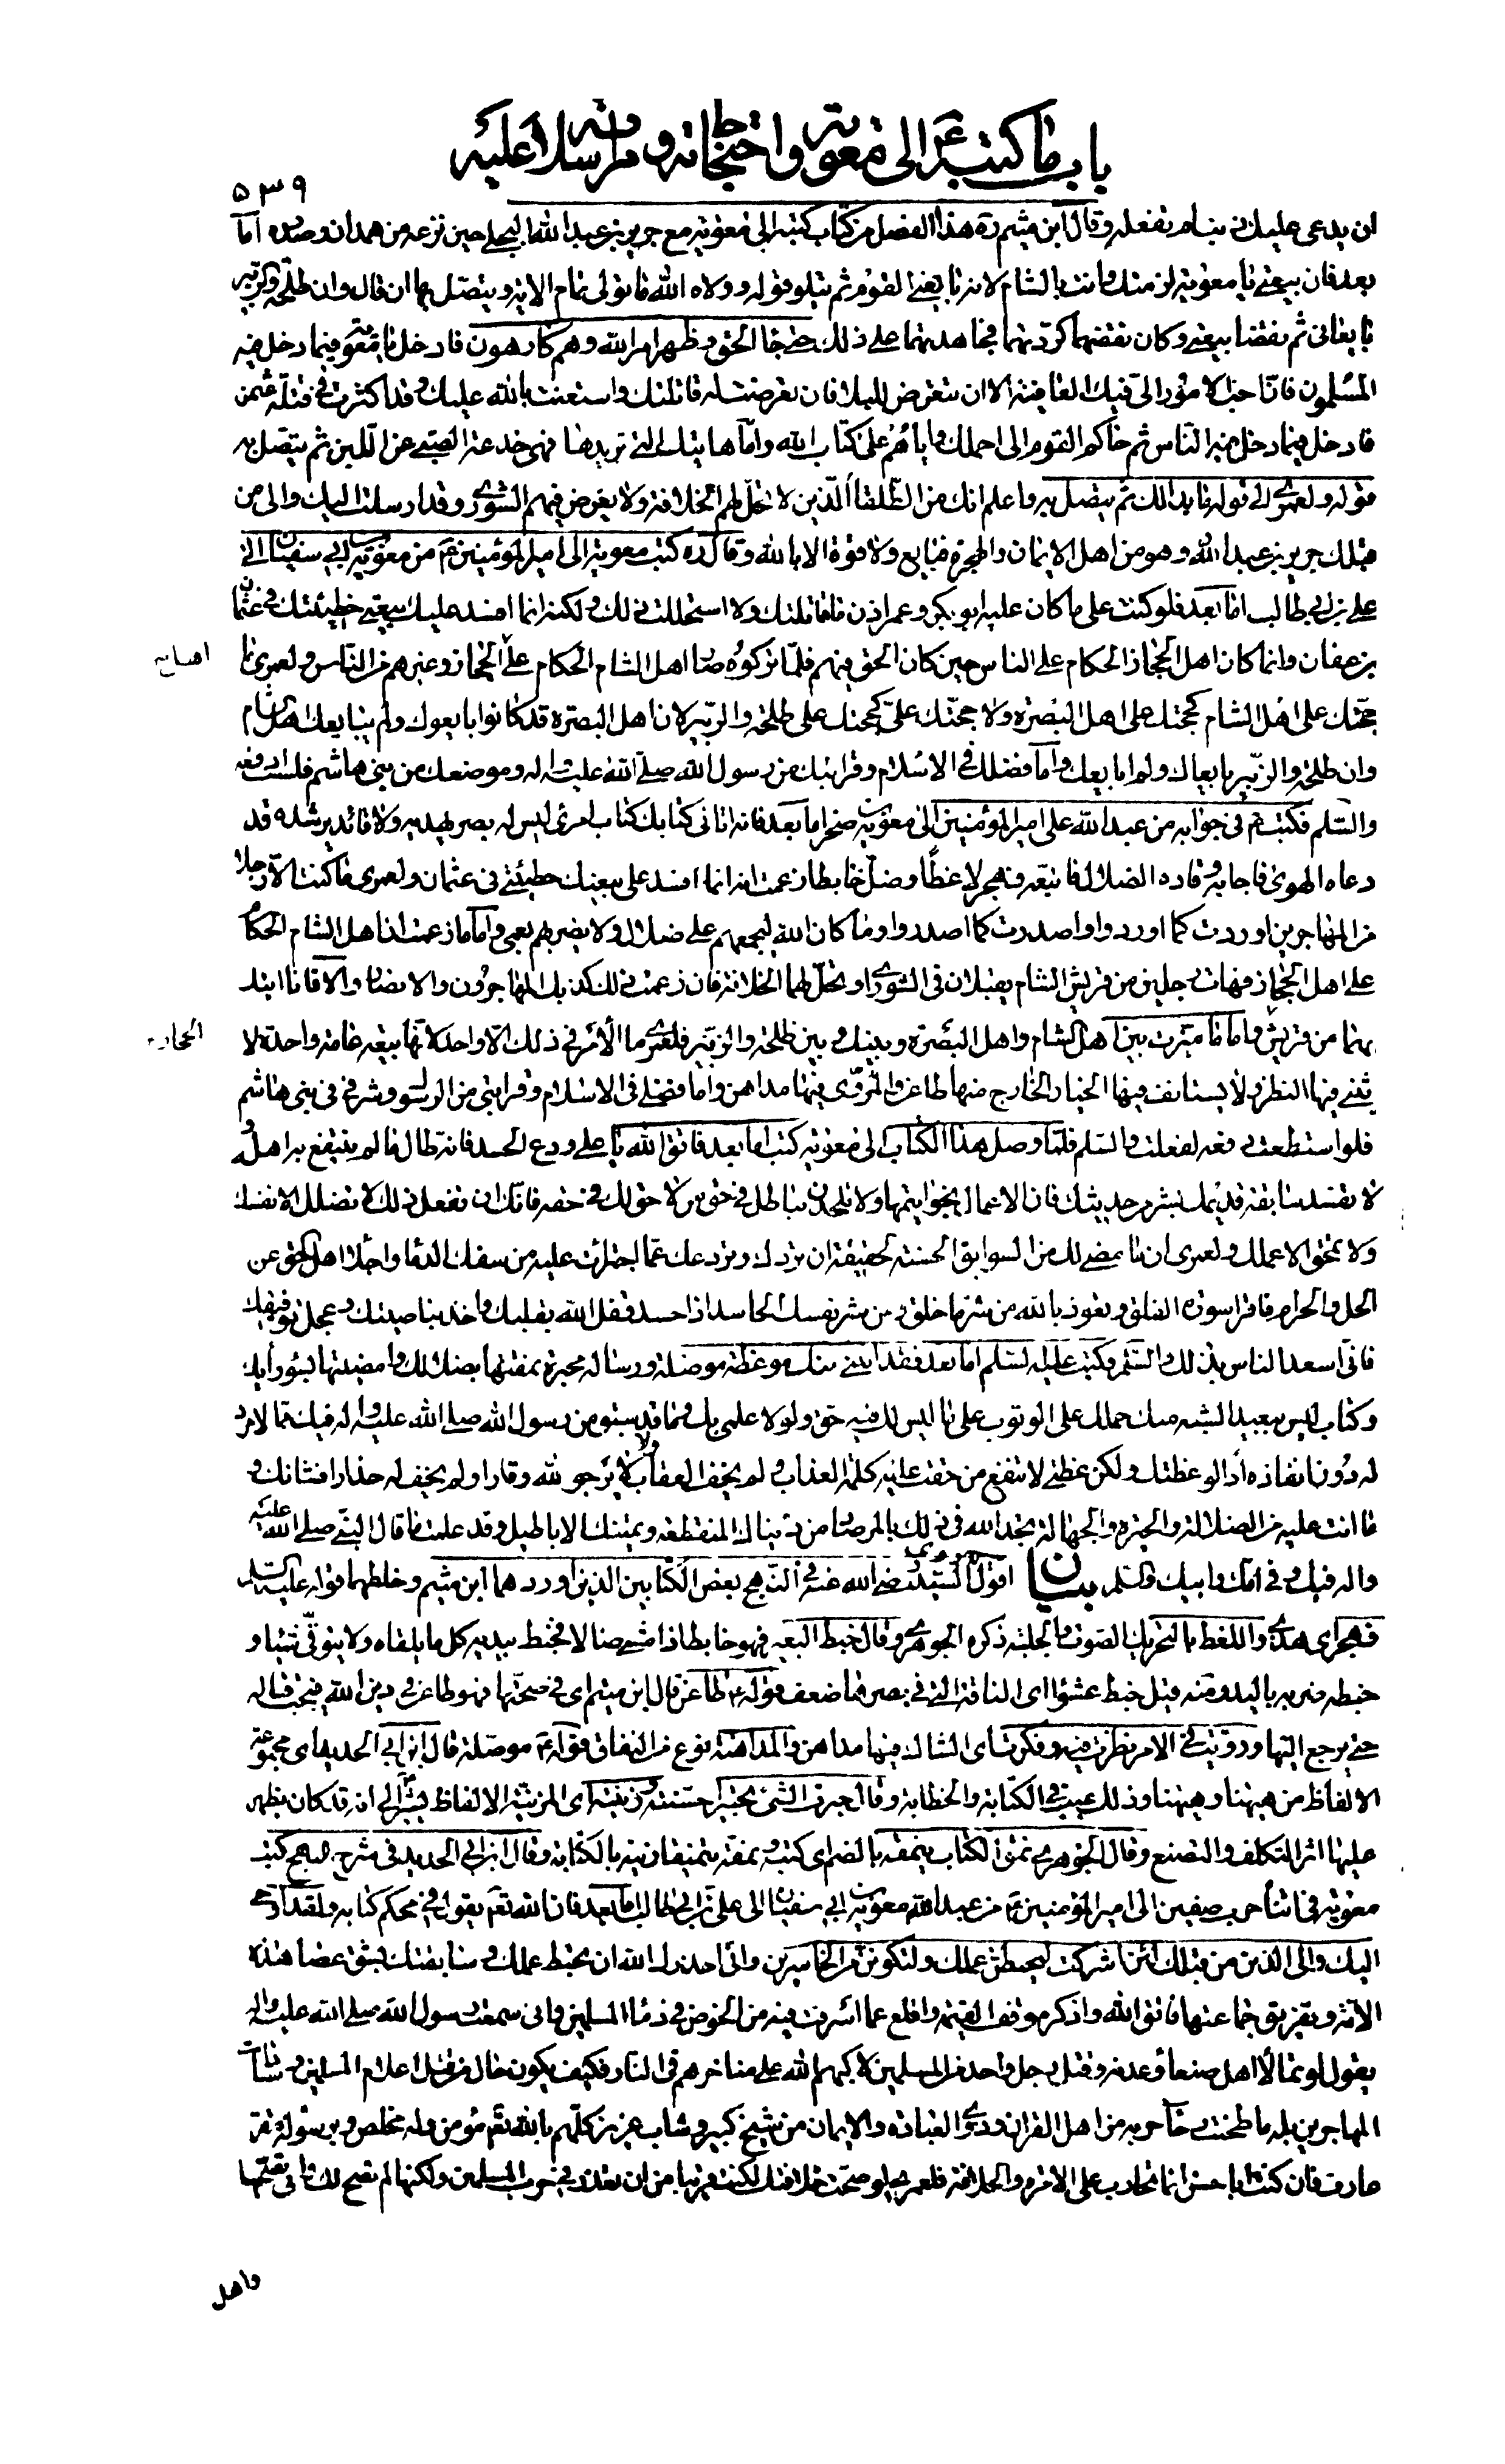 باب ما كتب ع الى معوية واحتجاجاته ومراسلاته عليه
۵۳۹
ان يدعى عليك فى بينا لم تفعله وقال ابن ميثم ره هذا الفصل من كتاب كتبه الى معوية مع جرير بن عبد الله البجلى حين نزعه من همدان وصدره اما
بعد فان بيعتى يا معوية لزمتك وانت بالشام لانه بايعنى القوم ثم يتلو قوله وولاه الله ما تولى تمام الاية ويتصل بها ان قال وان طلحة والزبير
بايعانى ثم نقضا بيعتى وكان نقضهما كردتهما فجاهدتهما على ذلك حتى جاء الحق وظهر امر الله وهم كارهون فادخل يا معوية فيما دخل فيه
المسلمون فان احب الامور الى فيك العافية الا ان تتعرض للبلاء فان تعرضت له قاتلتك واستعنت بالله عليك وقد اكثرت فى قتلة عثمن
فادخل فيما دخل فيه الناس ثم حاكم القوم الى احملك واياهم على كتاب الله واما هاتيك التى تريدها فهى خدعة الصبى عن اللبن ثم يتصل به
قوله ولعمرى الى قوله ما بدا لك ثم يتصل به واعلم انك من الطلقاء الذين لا تحل لهم الخلافة ولا يعرض فيهم الشورى وقد ارسلت اليك والى من
قبلك جرير بن عبد الله وهو من اهل الايمان والهجرة فبايع ولا قوة الا بالله وقال ره كتب معوية الى امير المؤمنين ع من معوية بن ابى سفيان الى
على بن ابى طالب اما بعد فلو كنت على ما كان عليه ابو بكر وعمر اذن ما قاتلتك ولا استحللت ذلك ولكنه انما افسد عليك بيعتى خطيئتك فى عثمان
بن عفان وانما كان اهل الحجاز الحكام على الناس حين كان الحق فيهم فلما تركوه صار اهل الشام الحكام على الحجاز وغيرهم من الناس ولعمرى ما
حجتك على اهل الشام كحجتك على اهل البصرة ولا حجتك على كحجتك على طلحة والزبير لان اهل البصرة قد كانوا بايعوك ولم يبايعك اهل الشام
وان طلحة والزبير بايعاك ولم ابايعك واما فضلك فى الاسلام وقرابتك من رسول الله صلى الله عليه واله وموضعك من بنى هاشم فلست ادفعه
والسلم فكتب ع فى جوابه من عبد الله على امير المؤمنين الى معوية بن صخر اما بعد فانه اتانى كتابك كتاب امرئ ليس له بصر يهديه ولا قائد يرشده قد
دعاه الهوى فاجابه وقاده الضلال فاتبعه فهجر لاغطا وضل خابطا زعمت انه انما افسد على بيعتك خطيئتى فى عثمان ولعمرى ما كنت الا رجلا
من المهاجرين اوردت كما اوردوا واصدرت كما اصدروا وما كان الله ليجمعهم على ضلال ولا يضربهم بعمى واما ما زعمت ان اهل الشام الحكام
على اهل الحجاز فهات رجلين من قريش الشام يقبلان فى الشورى او تحل لهما الخلافة فان زعمت ذلك كذبك المهاجرون والانصار والا فانا اتيك
بهما من قريش واما ما ميزت بين اهل الشام واهل البصرة وبينك وبين طلحة والزبير فلعمرى ما الامر فى ذلك الا واحد لانها بيعة عامة واحدة لا
يثنى فيها النظر ولا يستانف فيها الخيار الخارج منها طاعن والمروى فيها مداهن واما فضلى فى الاسلام وقرابتى من الرسول وشرفى فى بنى هاشم
فلو استطعت دفعه لفعلت والسلم فلما وصل هذا الكتاب الى معوية كتب اما بعد فاتق الله يا على ودع الحسد فانه طال ما لم ينتفع به اهله و
لا تفسد سابقة قديمك بشره حديثك فان الاعمال بخواتيمها ولا تلحدن بباطل فى حق من لا حق لك فى حقه فانك ان تفعل ذلك لا تضلل الا نفسك
ولا تمحق الا عملك ولعمرى ان ما مضى لك من السوابق الحسنة لحقيقة ان تردك وتردعك عما اجترأت عليه من سفك الدماء واجلاء اهل الحق عن
الحل والحرام فاقرا سورة الفلق وتعوذ بالله من شر ما خلق ومن شر نفسك الحاسد اذا حسد قفل الله بقلبك واخذ بناصيتك وعجل توفيقك
فانى اسعد الناس بذلك والسلم فكتب عليه السلم اما بعد فقد اتتنى منك موعظة موصلة ورسالة محبرة نمقتها بضلالك وامضيتها بسوء رأيك
وكتاب ليس ببعيد الشبه منك حملك على الوثوب على ما ليس لك فيه حق ولولا علمى بك وما قد سبق من رسول الله صلى الله عليه واله فيك مما لا مرد
له دون انفاذه اذا لوعظتك ولكن عظتى لا تنفع من حقت عليه كلمة العذاب ولم يخف العقاب ولا يرجو لله وقارا ولم يخف له حذارا فشانك و
ما انت عليه من الضلالة والحيرة والجهالة تجد الله فى ذلك بالمرصاد من دنياك المنقطعة وتمنيك الاباطيل وقد علمت ما قال النبى صلى الله عليه
واله فيك وفى امك وابيك والسلم بيان اقول السيد رضى الله عنه فى النهج بعض الكتابين الذين اوردهما ابن ميثم وخلطهما قوله عليه السلم
فهجر اى هذى واللغط بالتحريك الصوت والجلبة ذكره الجوهرى وقال خبط البعير فهو خابط اذا مشى ضالا فخبط بيديه كل ما يلقاه ولا يتوقى شيئا و
خبطه ضربه باليد ومنه قيل خبط عشواء اى الناقة التى فى بصرها ضعف قوله ع طاعن قال ابن ميثم اى فى صحتها فهو طاعن فى دين الله فيجب قتاله
حتى يرجع اليها وروّيت فى الامر نظرت فيه وفكرت اى الشاك فيها مداهن والمداهنة نوع من النفاق قوله ع موصلة قال ابن ابى الحديد اى مجموعة
الالفاظ من هيهنا وهيهنا وذلك عيب فى الكتابة والخطابة وقال حبرت الشئ تحبيرا حسنته وزينته اى المزينة الالفاظ يشير الى انه قد كان يظهر
عليها اثر التكلف والتصنع وقال الجوهرى نمق الكتاب ينمقه بالضم اى كتبه ونمقه تنميقا زينه بالكتابة وقال ابن ابى الحديد فى شرح النهج كتب
معوية فى اثناء حرب صفين الى امير المؤمنين ع من عبد الله معوية بن ابى سفيان الى على بن ابى طالب اما بعد فان الله تعم يقول فى محكم كتابه ولقد اوحى
اليك والى الذين من قبلك لئن اشركت ليحبطن عملك ولتكونن من الخاسرين وانى احذرك الله ان تحبط عملك وسابقتك بشق عصا هذه
الامة وتفريق جماعتها فاتق الله واذكر موقف القيمة واقلع عما اسرفت فيه من الخوض فى دماء المسلمين وانى سمعت رسول الله صلى الله عليه واله
يقول لو تمالأ اهل صنعاء وعدن على قتل رجل واحد من المسلمين لاكبهم الله على مناخرهم فى النار فكيف يكون حال من قتل اعلام المسلمين وسادات
المهاجرين بله ما طحنت رحا حربه من اهل القران وذوى العبادة والايمان من شيخ كبير وشاب عزيز كلهم بالله تعم مؤمن وله مخلص وبرسوله مقر
عارف فان كنت ابا حسن انما تحارب على الامرة والخلافة فلعمرى لو صحت خلافتك لكنت قريبا من ان تعذر فى حرب المسلمين ولكنها لم تصح لك وانى بصحتها
واهل